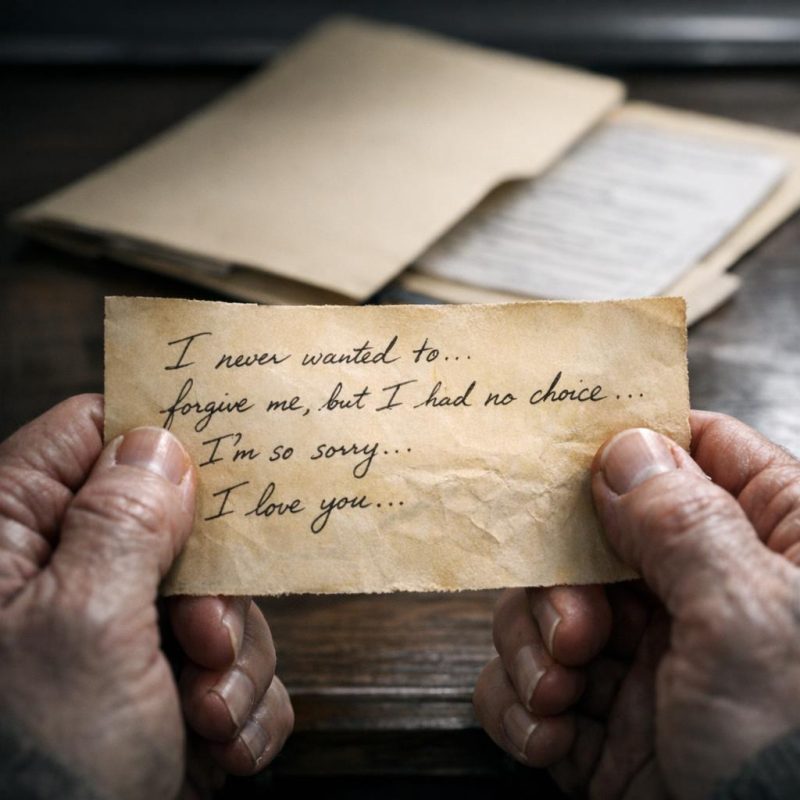 I never wanted to...
forgive me, but I had no choice...
I'm so sorry...
I love you...